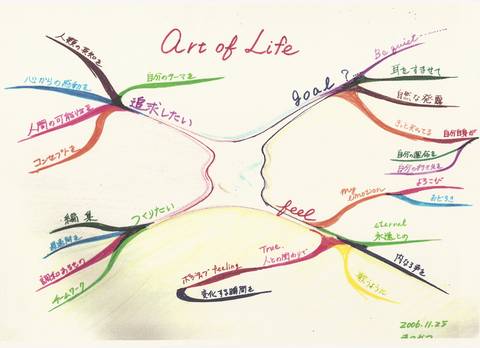 Art of Life
人類の英知を
心からの感動を
人間の可能性を
コンセプトを
自分のテーマを
追求したい
goal?
Be quiet
耳をすませて
自然な発露
きっと知ってる
自分自身が
自分の運命を
よろこび
おどろき
my emotion
feel
eternal
永遠との
円なる夢を
歌うように
True
人との関わりで
ポジティブ feeling
変化する瞬間を
つくりたい
編集
調和あるもの
チームワーク
2006.11.25